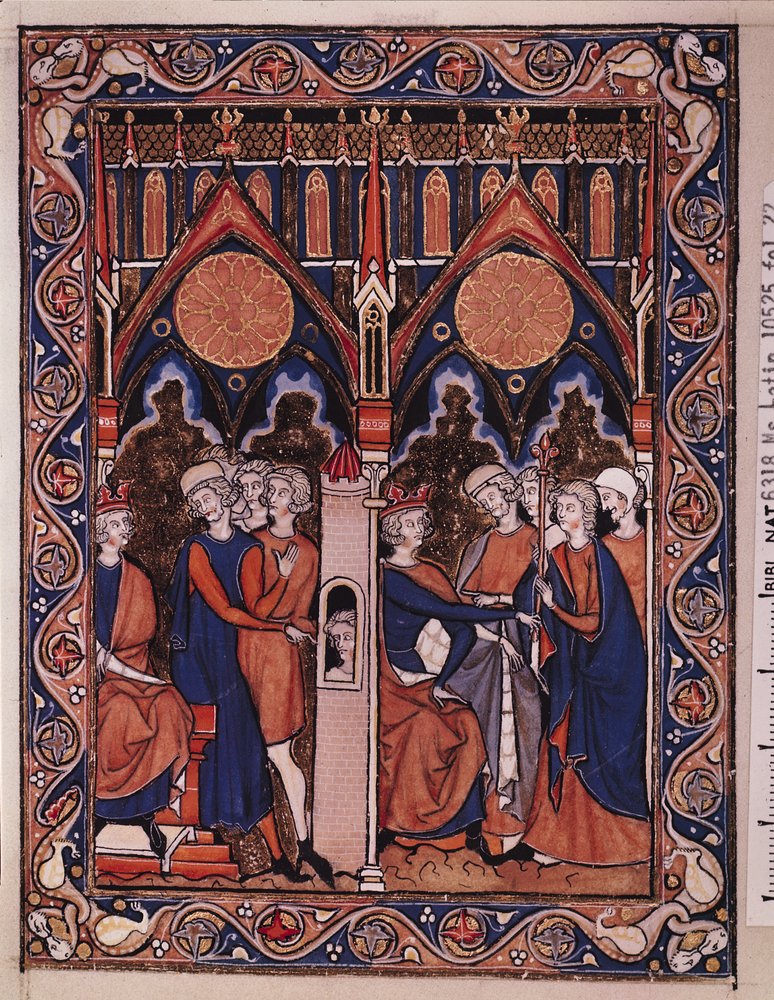 BIBL NAT 6318 Ms Latin 10525 fol 22